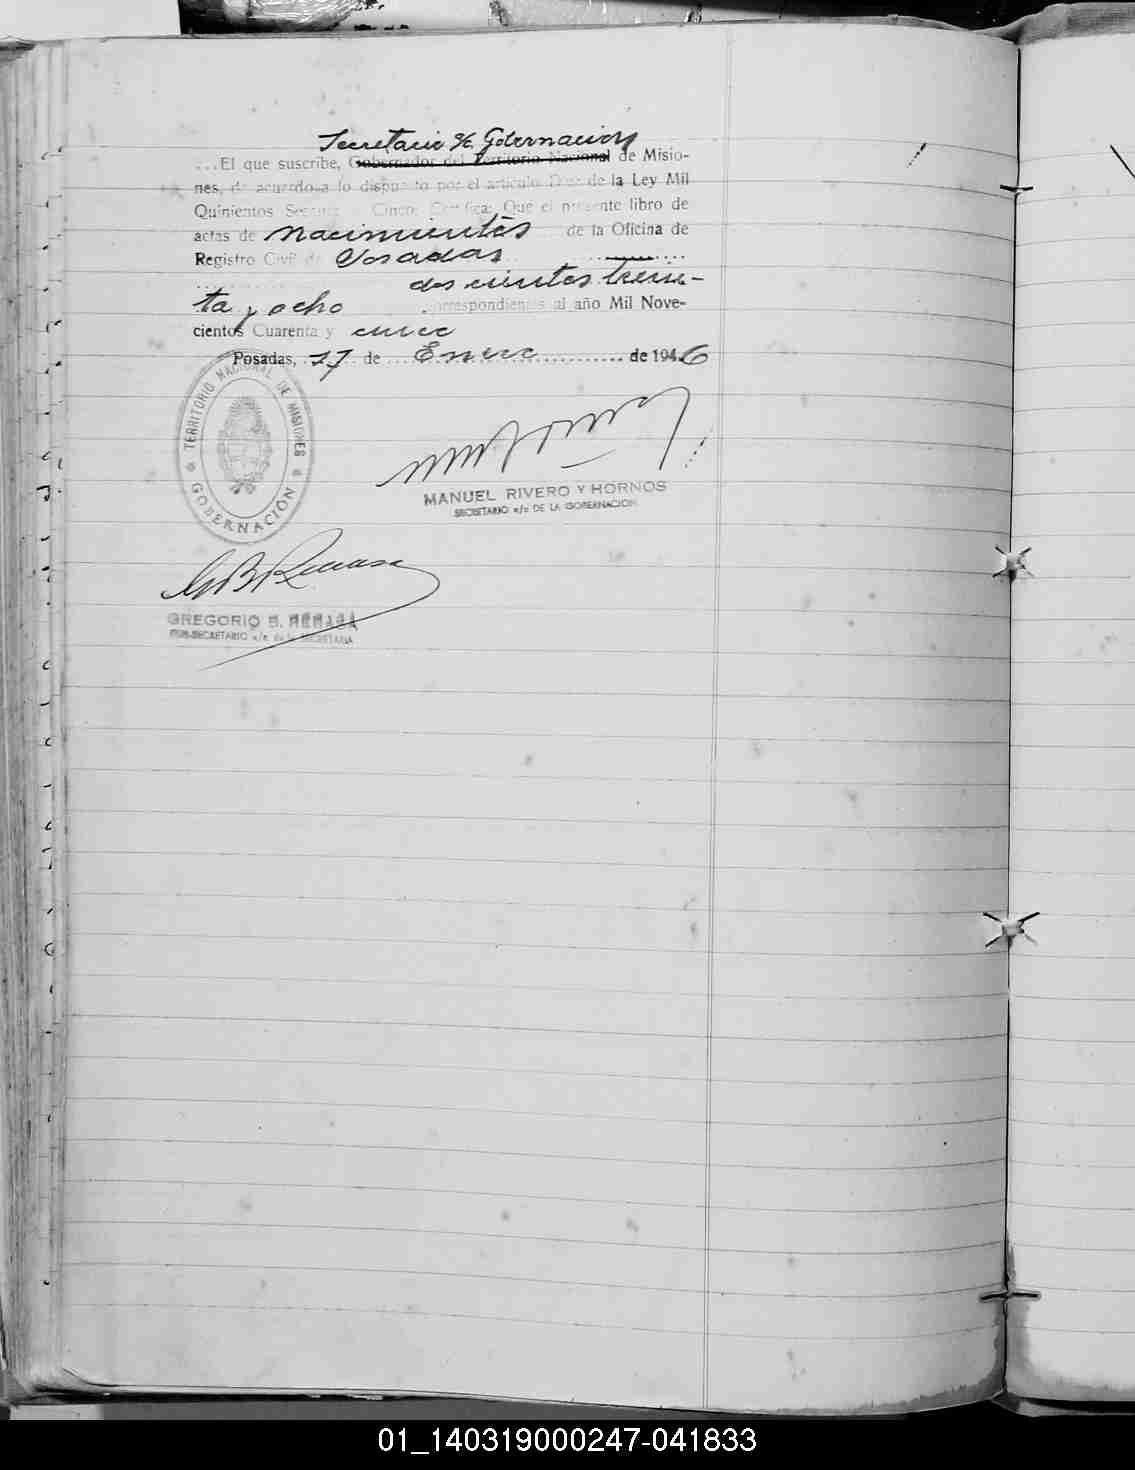 Secretario a/c Gobernacion
...El que suscribe, Gobernador del Territorio Nacional de Misio-
nes, de acuerdo a lo dispuesto por el artículo Diez de la Ley Mil
Quinientos Sesenta y Cinco: Certifica: Que el presente libro de
actas de Nacimientos de la Oficina de
Registro Civil de Posadas
dos cientos trein-
ta y ocho correspondientes al año Mil Nove-
cientos Cuarenta y cinco
Posadas, 17 de Enero de 1946
TERRITORIO NACIONAL DE MISIONES
GOBERNACIÓN
MANUEL RIVERO Y HORNOS
SECRETARIO a/c DE LA GOBERNACION
G B Renasa
GREGORIO B.
SUB-SECRETARIO a/c de la SECRETARIA
01_140319000247-041833